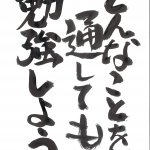 どんなことを
通しても
勉強しよう